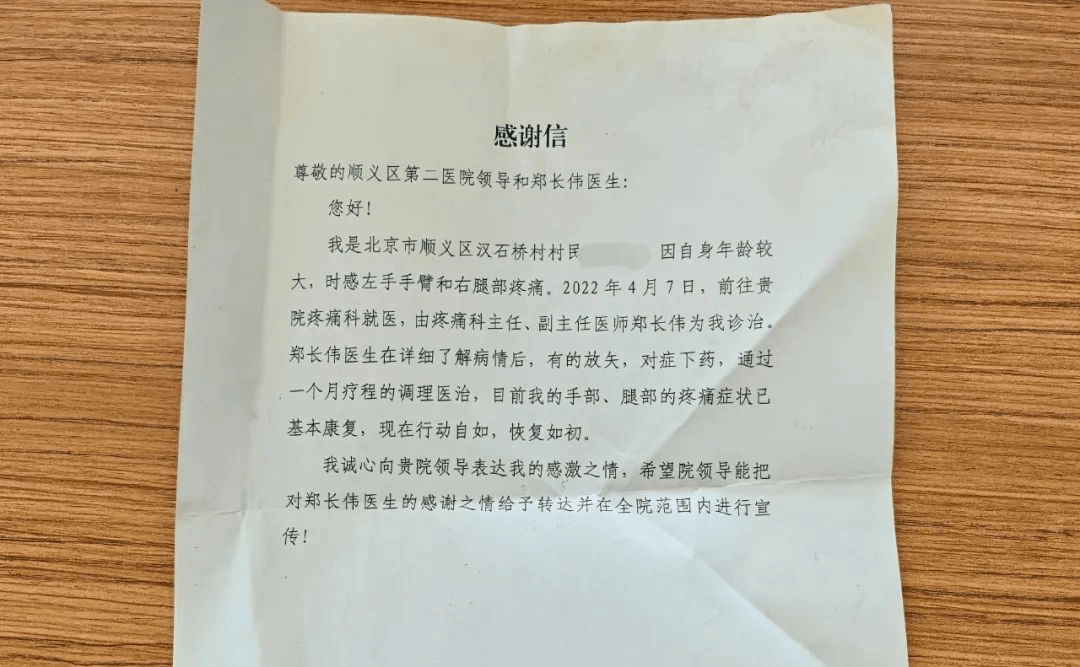 感谢信
尊敬的顺义区第二医院领导和郑长伟医生：
您好！
我是北京市顺义区汉石桥村村民 因自身年龄较
大，时感左手手臂和右腿部疼痛。2022年4月7日，前往贵
院疼痛科就医，由疼痛科主任、副主任医师郑长伟为我诊治。
郑长伟医生在详细了解病情后，有的放矢，对症下药，通过
一个月疗程的调理医治，目前我的手部、腿部的疼痛症状已
基本康复，现在行动自如，恢复如初。
我诚心向贵院领导表达我的感激之情，希望院领导能把
对郑长伟医生的感谢之情给予转达并在全院范围内进行宣
传！